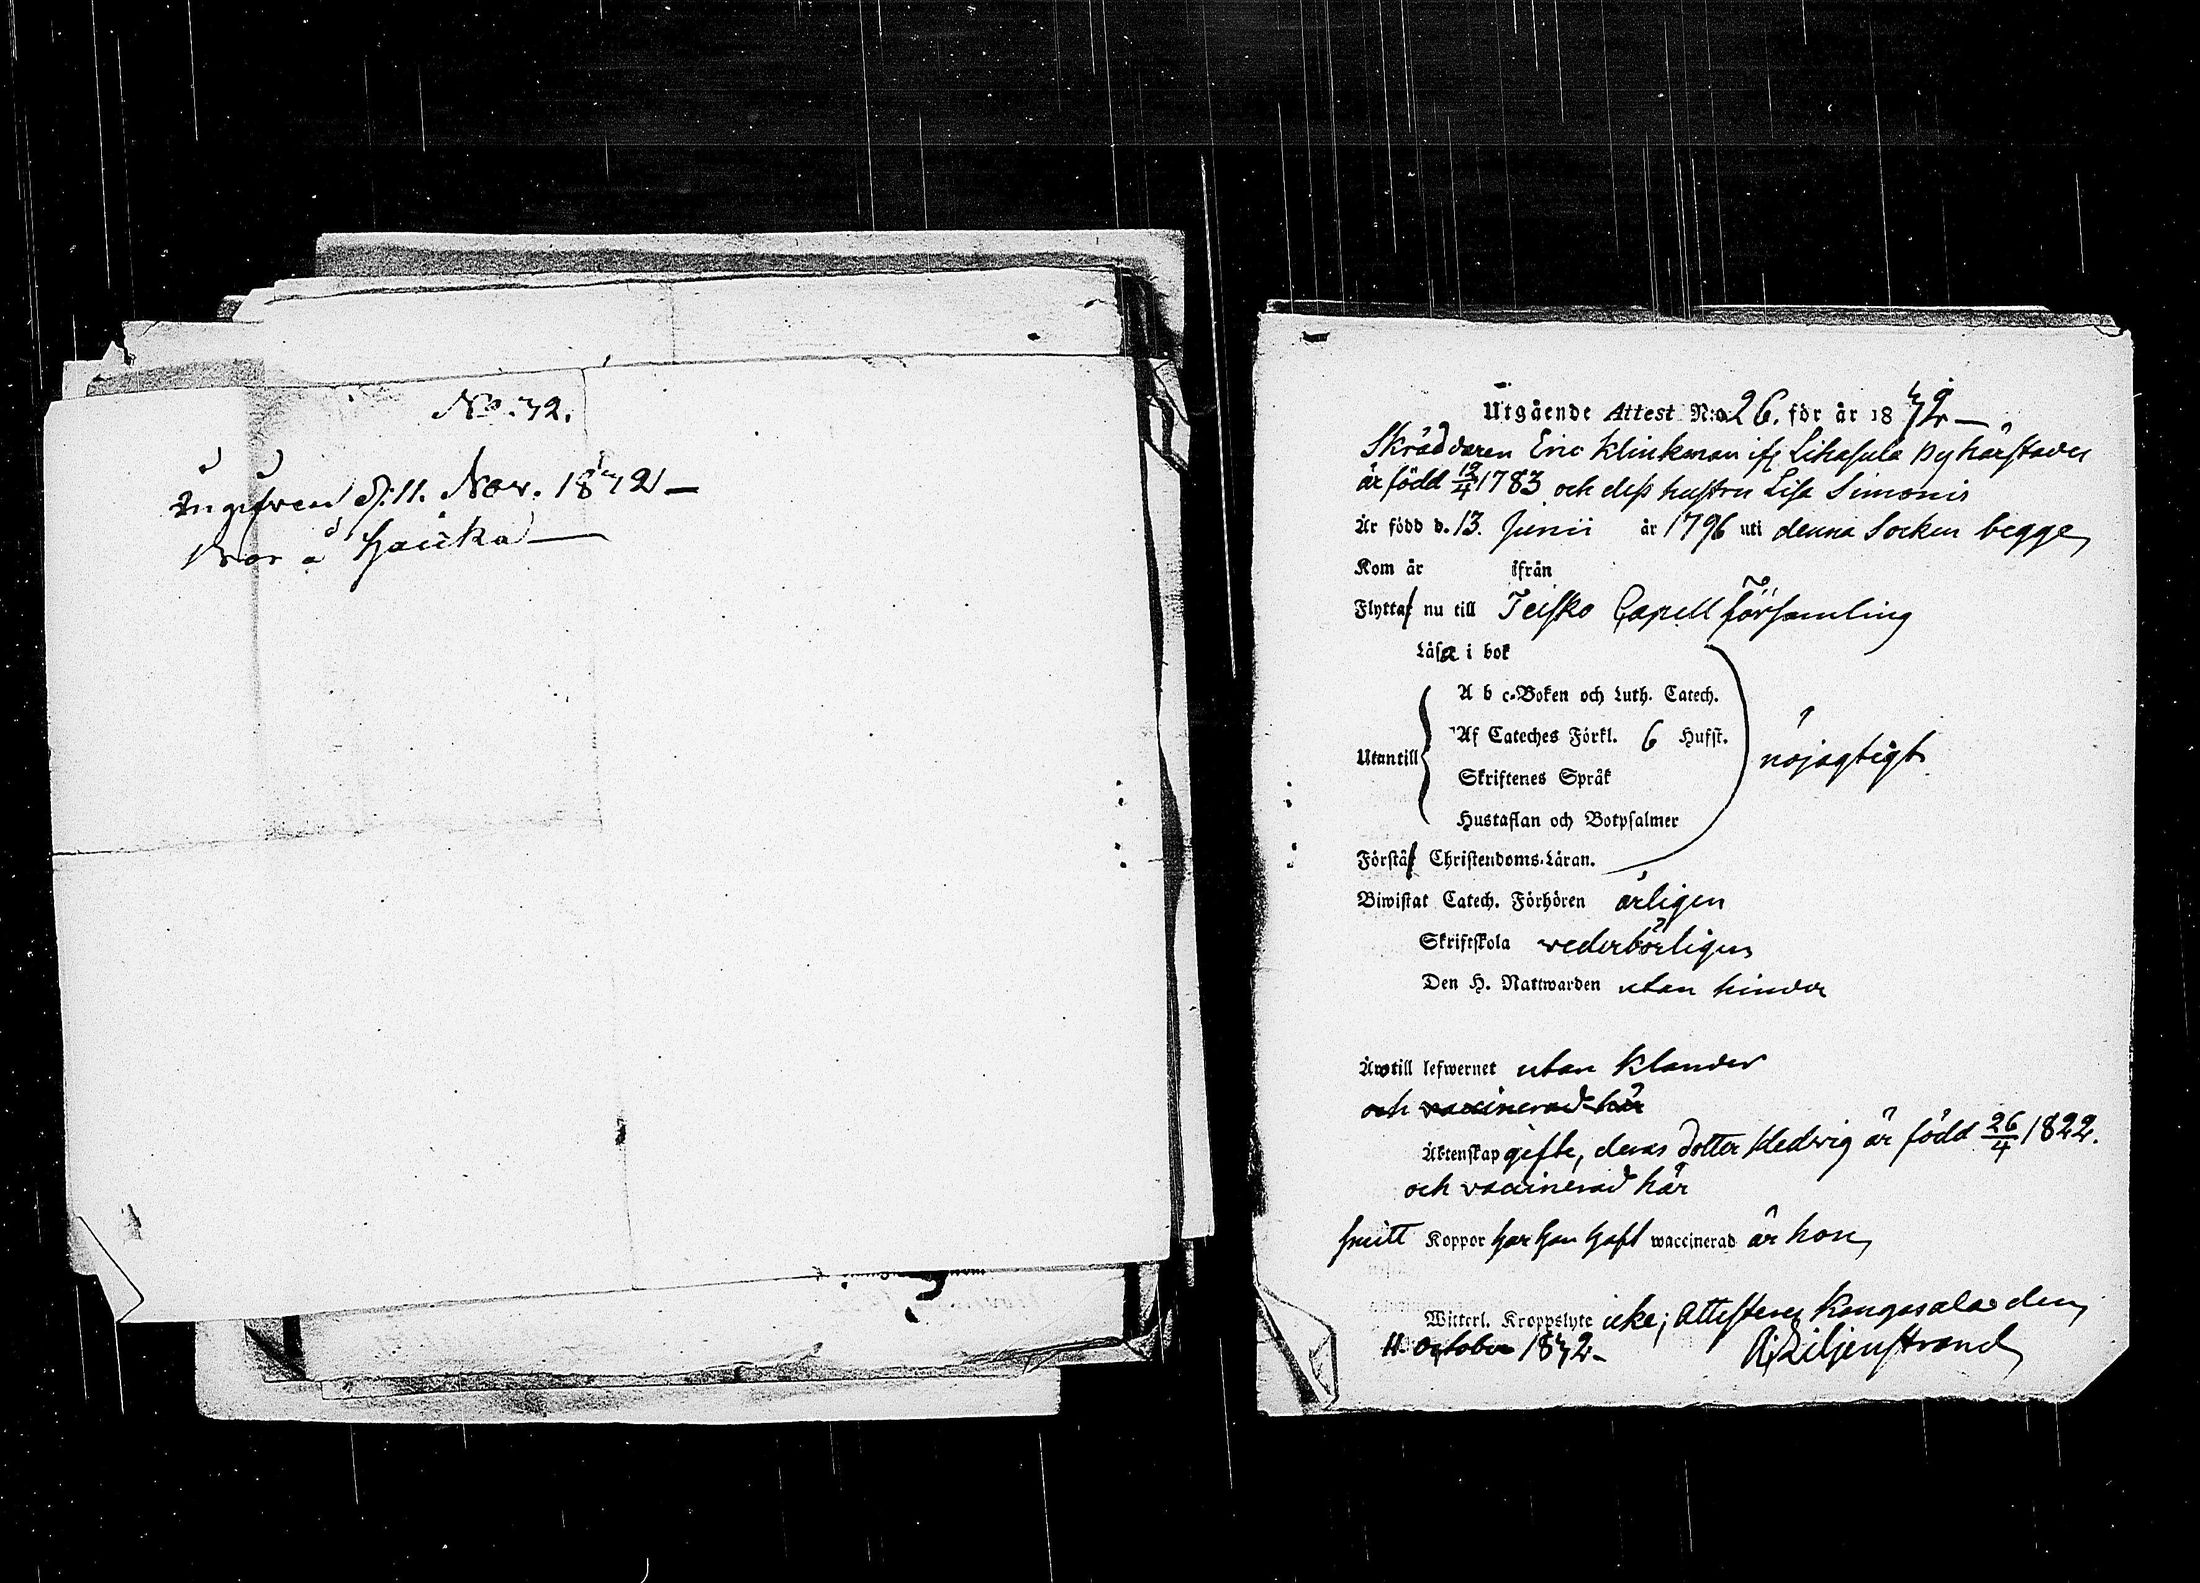 No. 42.
Ingifven d. 11. Nov. 1842 —
Bor å Hauka —
Utgående Attest N:o 26. för år 1842 —
Skräddaren Eric Klinkman ifr. Lihasula by härstädes
är född 12/4 1783 och dess hustru Lisa Simonis
Är född d. 13. Junii år 1796 uti denna Socken begge
Kom år ifrån
Flytta nu till Teisko Capell församling
Läsa i bok
A b c-Boken och Luth. Catech.
Af Cateches Förkl. 6 Hufst.
Utantill
Skriftenes Språk
nöjagtigt
Hustaflan och Botpsalmer
Förstå Christendoms-Läran.
Biwistat Catech. Förhören årligen
Skriftskola wederbörligen
Den H. Nattwarden utan hinder
Till lefwernet utan klander
och vaccinerad här
Äktenskap gifte, deras dotter Hedvig är född 26/4 1822.
och vaccinerad här
smitt Koppor har han haft waccinerad är hon
Witterl. Kroppslyte icke; Attesteras Kangasala den
11. October 1842 — Liljenstrand